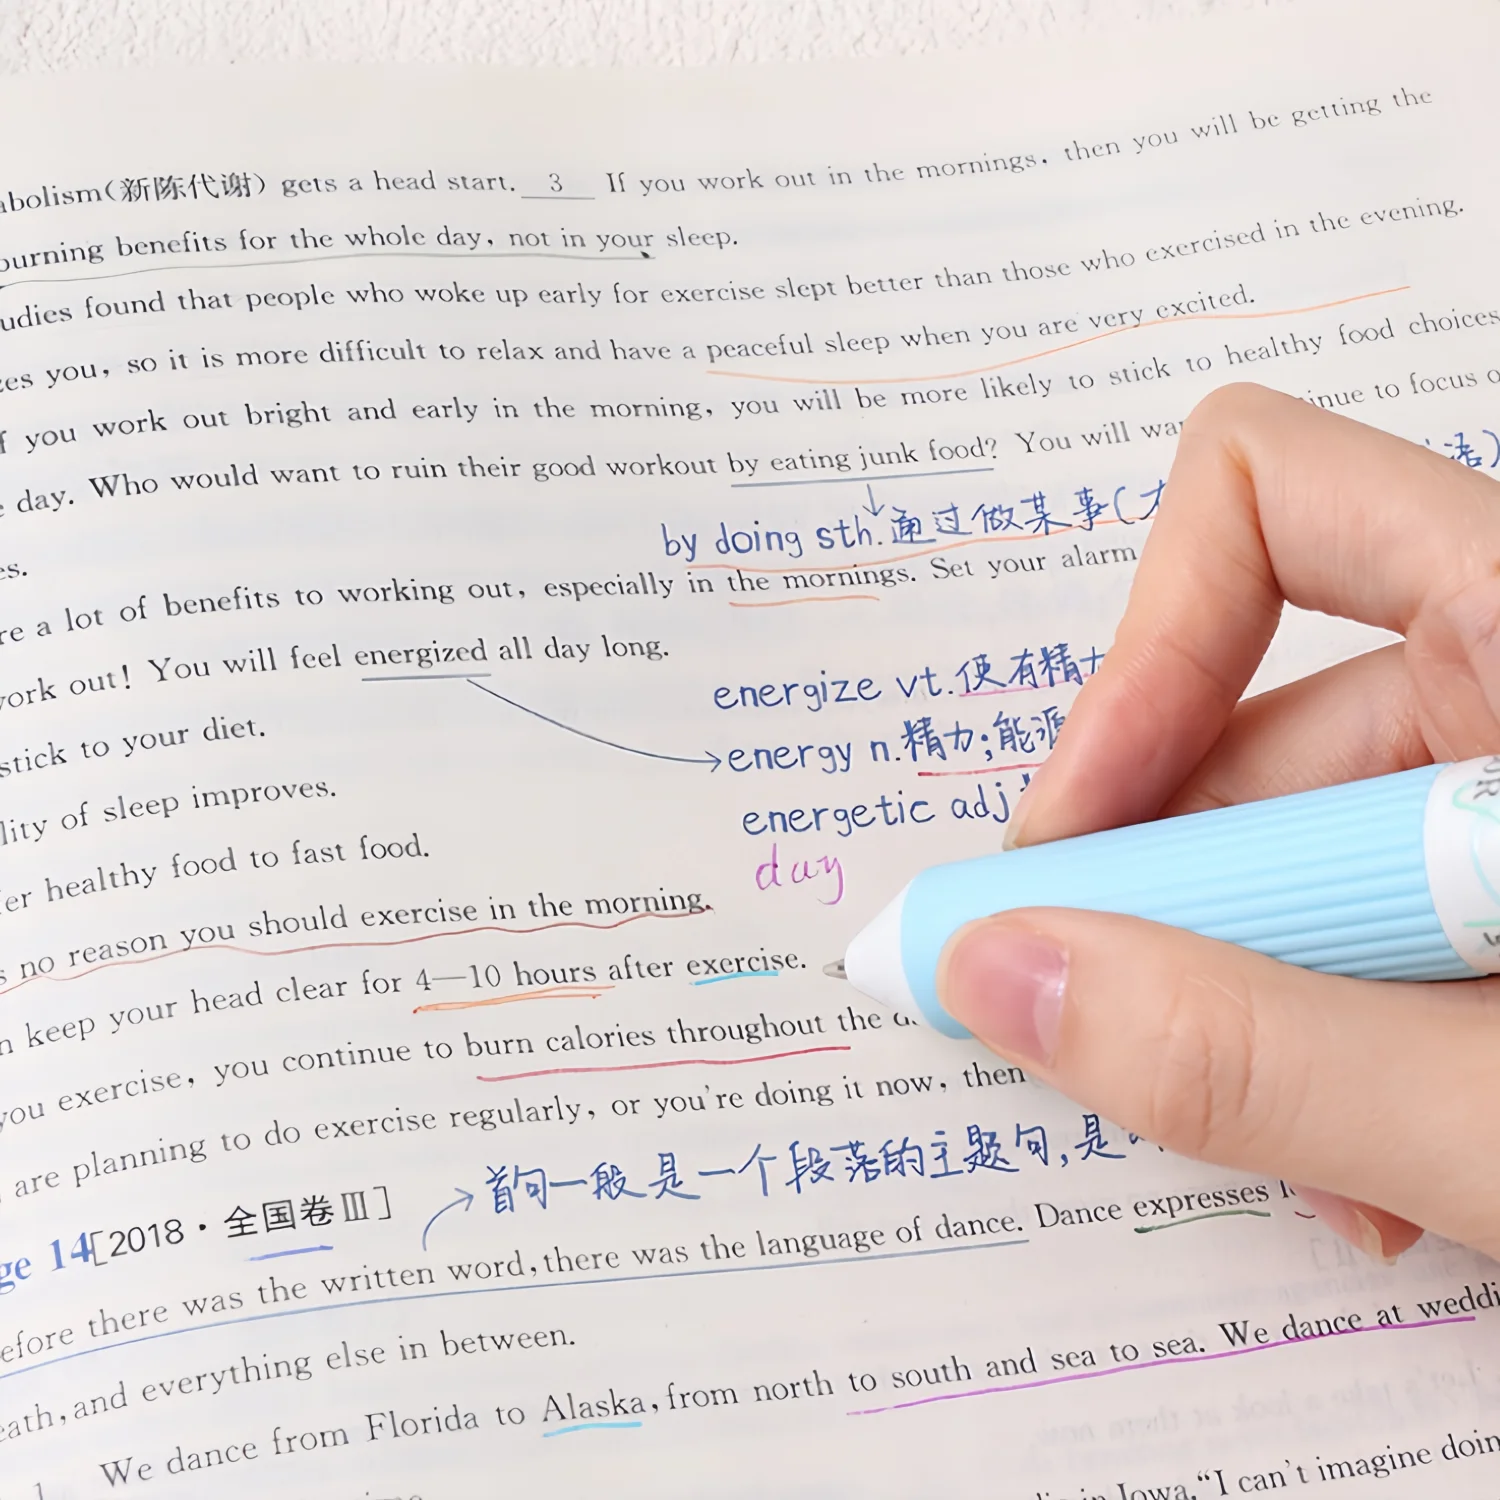 abolism(新陈代谢) gets a head start. 3 If you work out in the mornings, then you will be getting the
burning benefits for the whole day, not in your sleep.
udies found that people who woke up early for exercise slept better than those who exercised in the evening.
zes you, so it is more difficult to relax and have a peaceful sleep when you are very excited.
f you work out bright and early in the morning, you will be more likely to stick to healthy food choices
day. Who would want to ruin their good workout by eating junk food? You will inue to focus
by doing sth.通过做某事( 语)
es.
re a lot of benefits to working out, especially in the mornings. Set your alarm
ork out! You will feel energized all day long.
energize vt.使有精力
stick to your diet.
energy n.精力;能源
lity of sleep improves.
energetic adj
er healthy food to fast food.
day
s no reason you should exercise in the morning.
n keep your head clear for 4—10 hours after exercise.
you exercise, you continue to burn calories throughout the
are planning to do exercise regularly, or you're doing it now, then
首句一般是一个段落的主题句,是
ge 14[2018·全国卷Ⅲ]
efore there was the written word, there was the language of dance. Dance expresses
eath, and everything else in between.
We dance from Florida to Alaska, from north to south and sea to sea. We dance at weddi
1
in Iowa, "I can't imagine doin